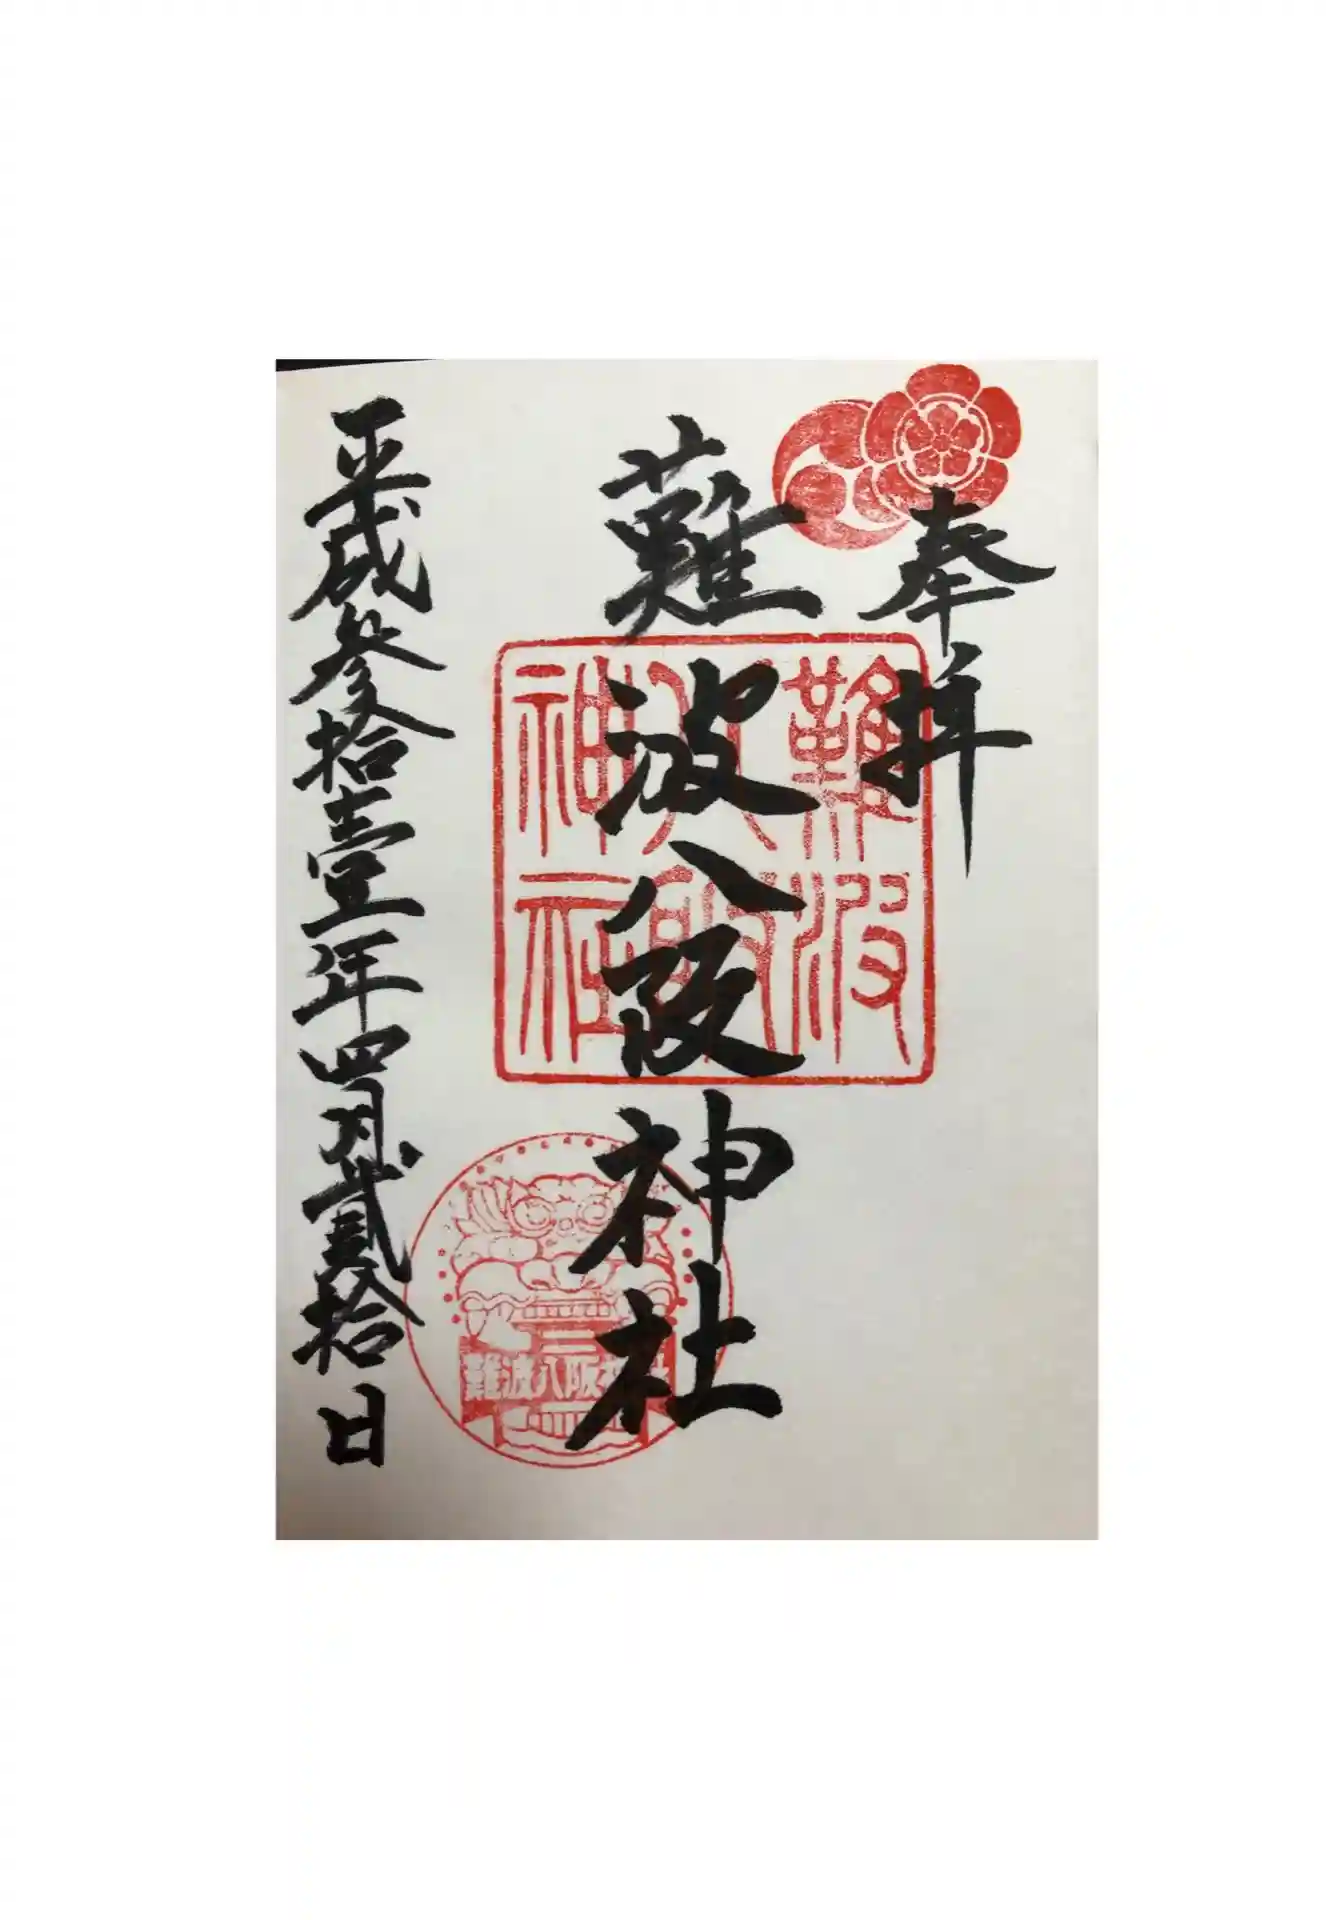 奉拝
難波八阪神社
平成参拾壹年四月貳拾日
難波
八阪
神社
難波八阪神社